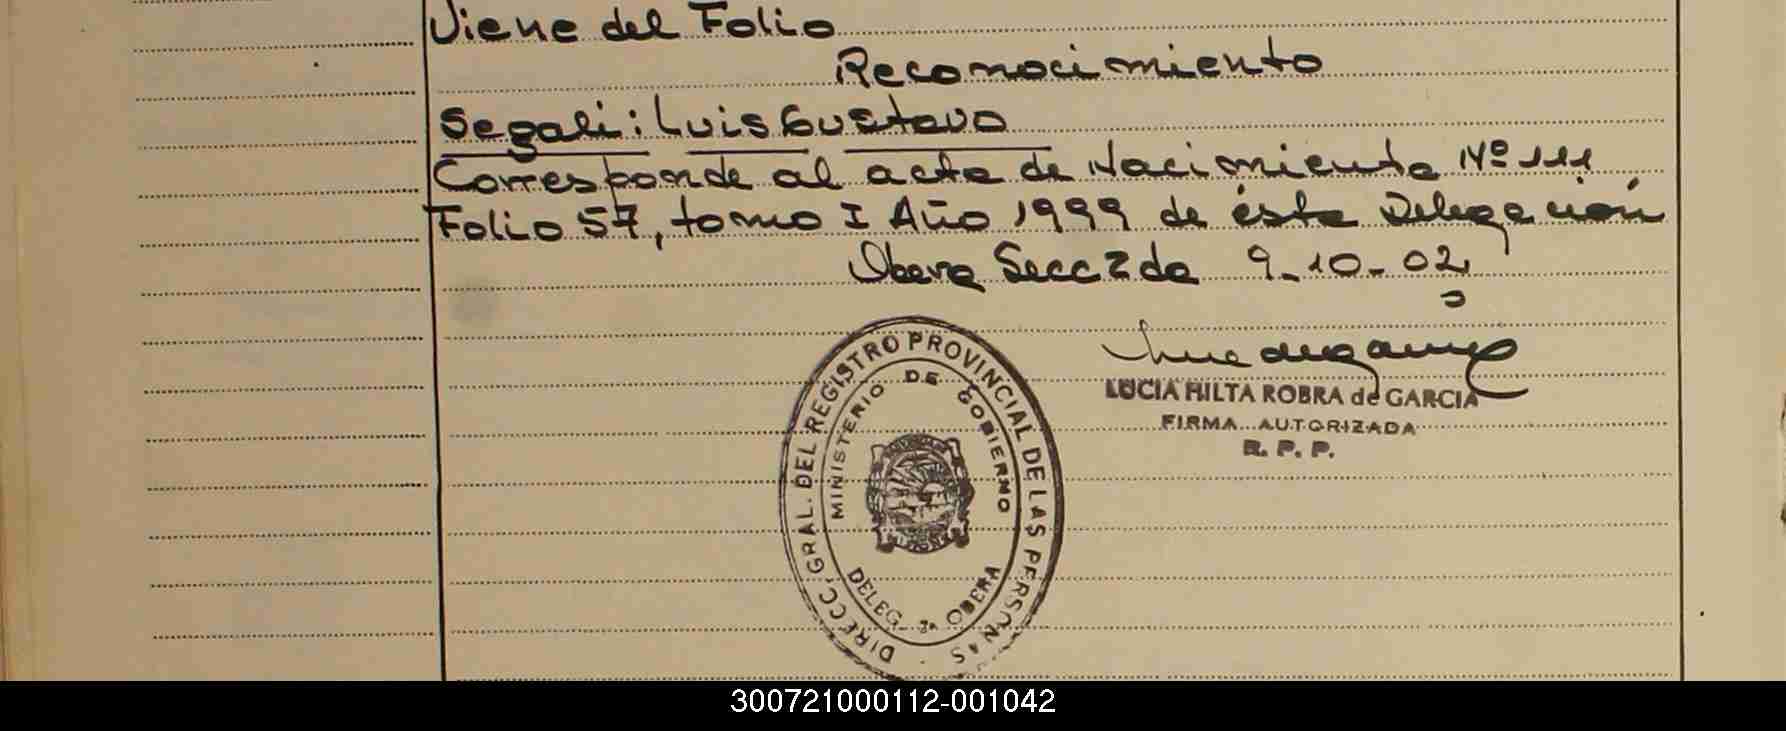 Viene del Folio
Reconocimiento
Segali: Luis Gustavo
Corresponde al acta de Nacimiento Nº 111
Folio 57, tomo I Año 1999 de ésta Delegación
Obera Secc 2da 9-10-02
LUCIA HILTA ROBRA de GARCIA
FIRMA AUTORIZADA
R. P. P.
DIRECC. GRAL. DEL REGISTRO PROVINCIAL DE LAS PERSONAS
MINISTERIO DE GOBIERNO
DELEG. 2a OBERA
300721000112-001042